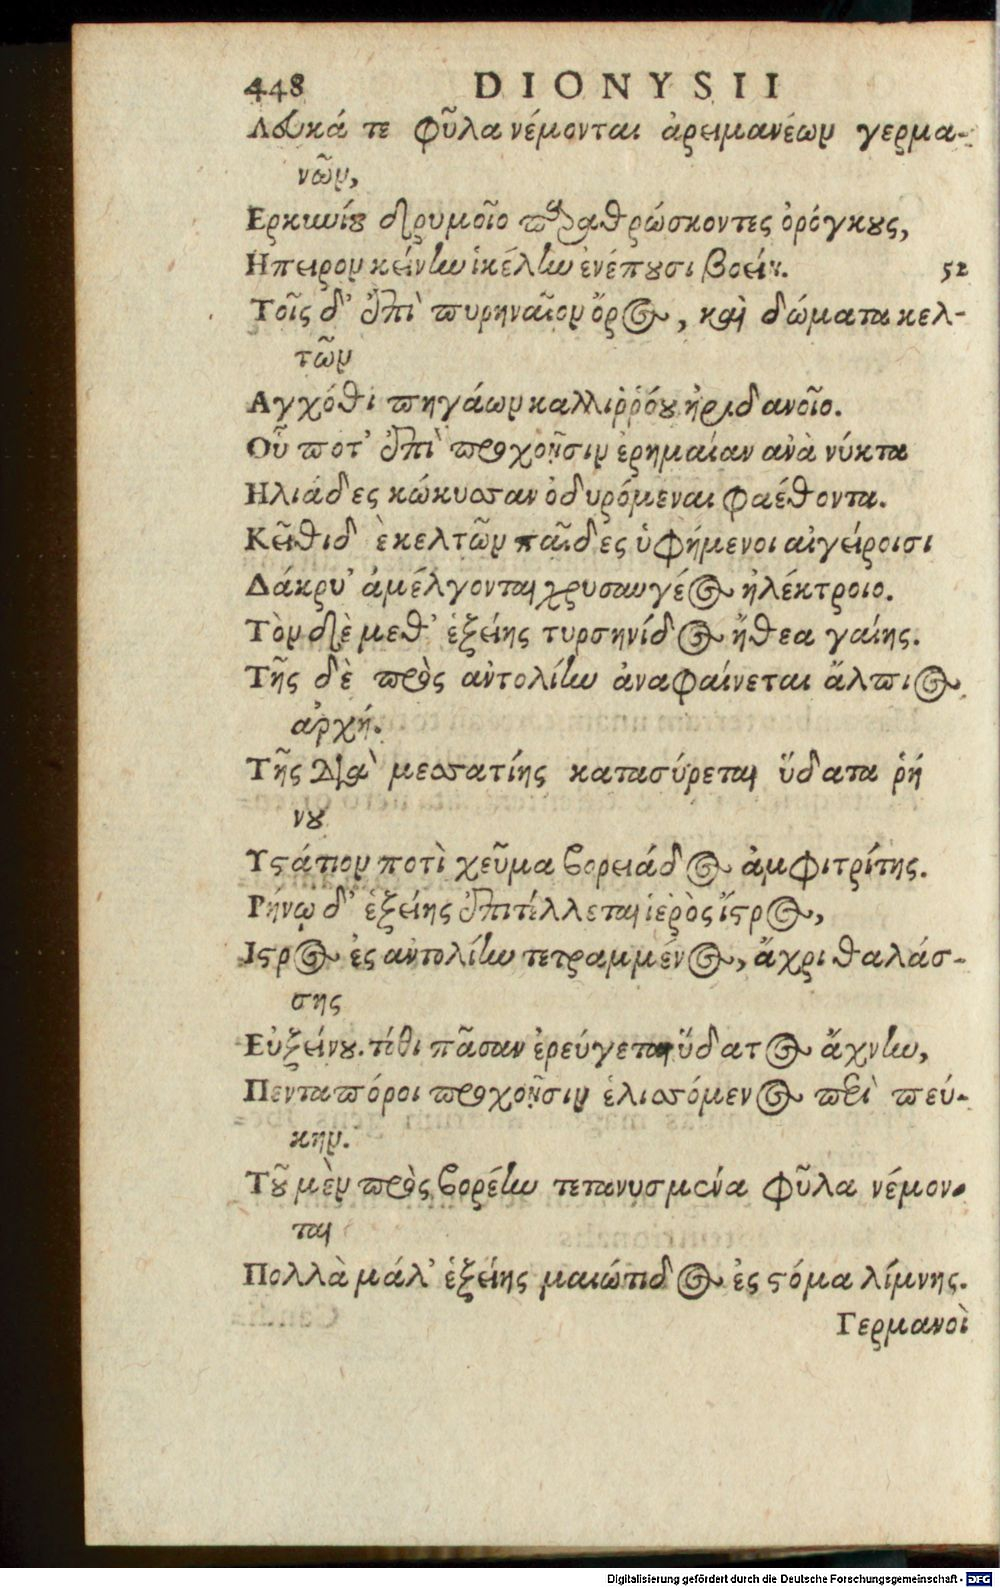 448 DIONYSII
Λευκά τε φῦλα νέμονται ἀρειμανέων γερμα-
νῶν,
Ερκυνίου δρυμοῖο παραθρώσκοντες ὀρόγκους,
Ηπειρον κείνην ἰκέλην ἐνέπουσι βοείη. 52
Τοῖς δ' ἐπὶ πυρηναῖον ὄρος, καὶ δώματα κελ-
τῶν
Αγχόθι πηγάων καλλιῤῥόου ἠριδανοῖο.
Οὗ ποτ' ἐπὶ προχοῇσιν ἐρημαίαν ἀνὰ νύκτα
Ηλιάδες κώκυσαν ὀδυρόμεναι φαέθοντα.
Κεῖθι δ ὲ κελτῶν παῖδες ὑφήμενοι αἰγείροισι
Δάκρυ' ἀμέλγονται χρυσαυγέος ἠλέκτροιο.
Τὸν δὲ μεθ' ἑξείης τυρσηνίδος ἤθεα γαίης.
Τῆς δὲ πρὸς ἀντολίην ἀναφαίνεται ἄλπιος
ἀρχή.
Τῆς διὰ μεσσατίης κατασύρεται ὕδατα ῥή
νου
Υστάτιον ποτὶ χεῦμα βορειάδος ἀμφιτρίτης.
Ρήνῳ δ' ἑξείης ἐπιτέλλεται ἱερὸς ἴστρος,
Ιστρος ἐς ἀντολίην τετραμμένος, ἄχρι θαλάσ-
σης
Εὐξείνου. τόθι πᾶσαν ἐρεύγεται ὕδατος ἄχνην,
Πενταπόροι προχοῇσιν ἑλισσόμενος περὶ πεύ-
κην.
Τοῦ μὲν πρὸς βορέην τετανυσμένα φῦλα νέμον-
ται
Πολλὰ μάλ' ἑξείης μαιώτιδος ἐς στόμα λίμνης.
Γερμανοὶ
Digitalisierung gefördert durch die Deutsche Forschungsgemeinschaft - DFG